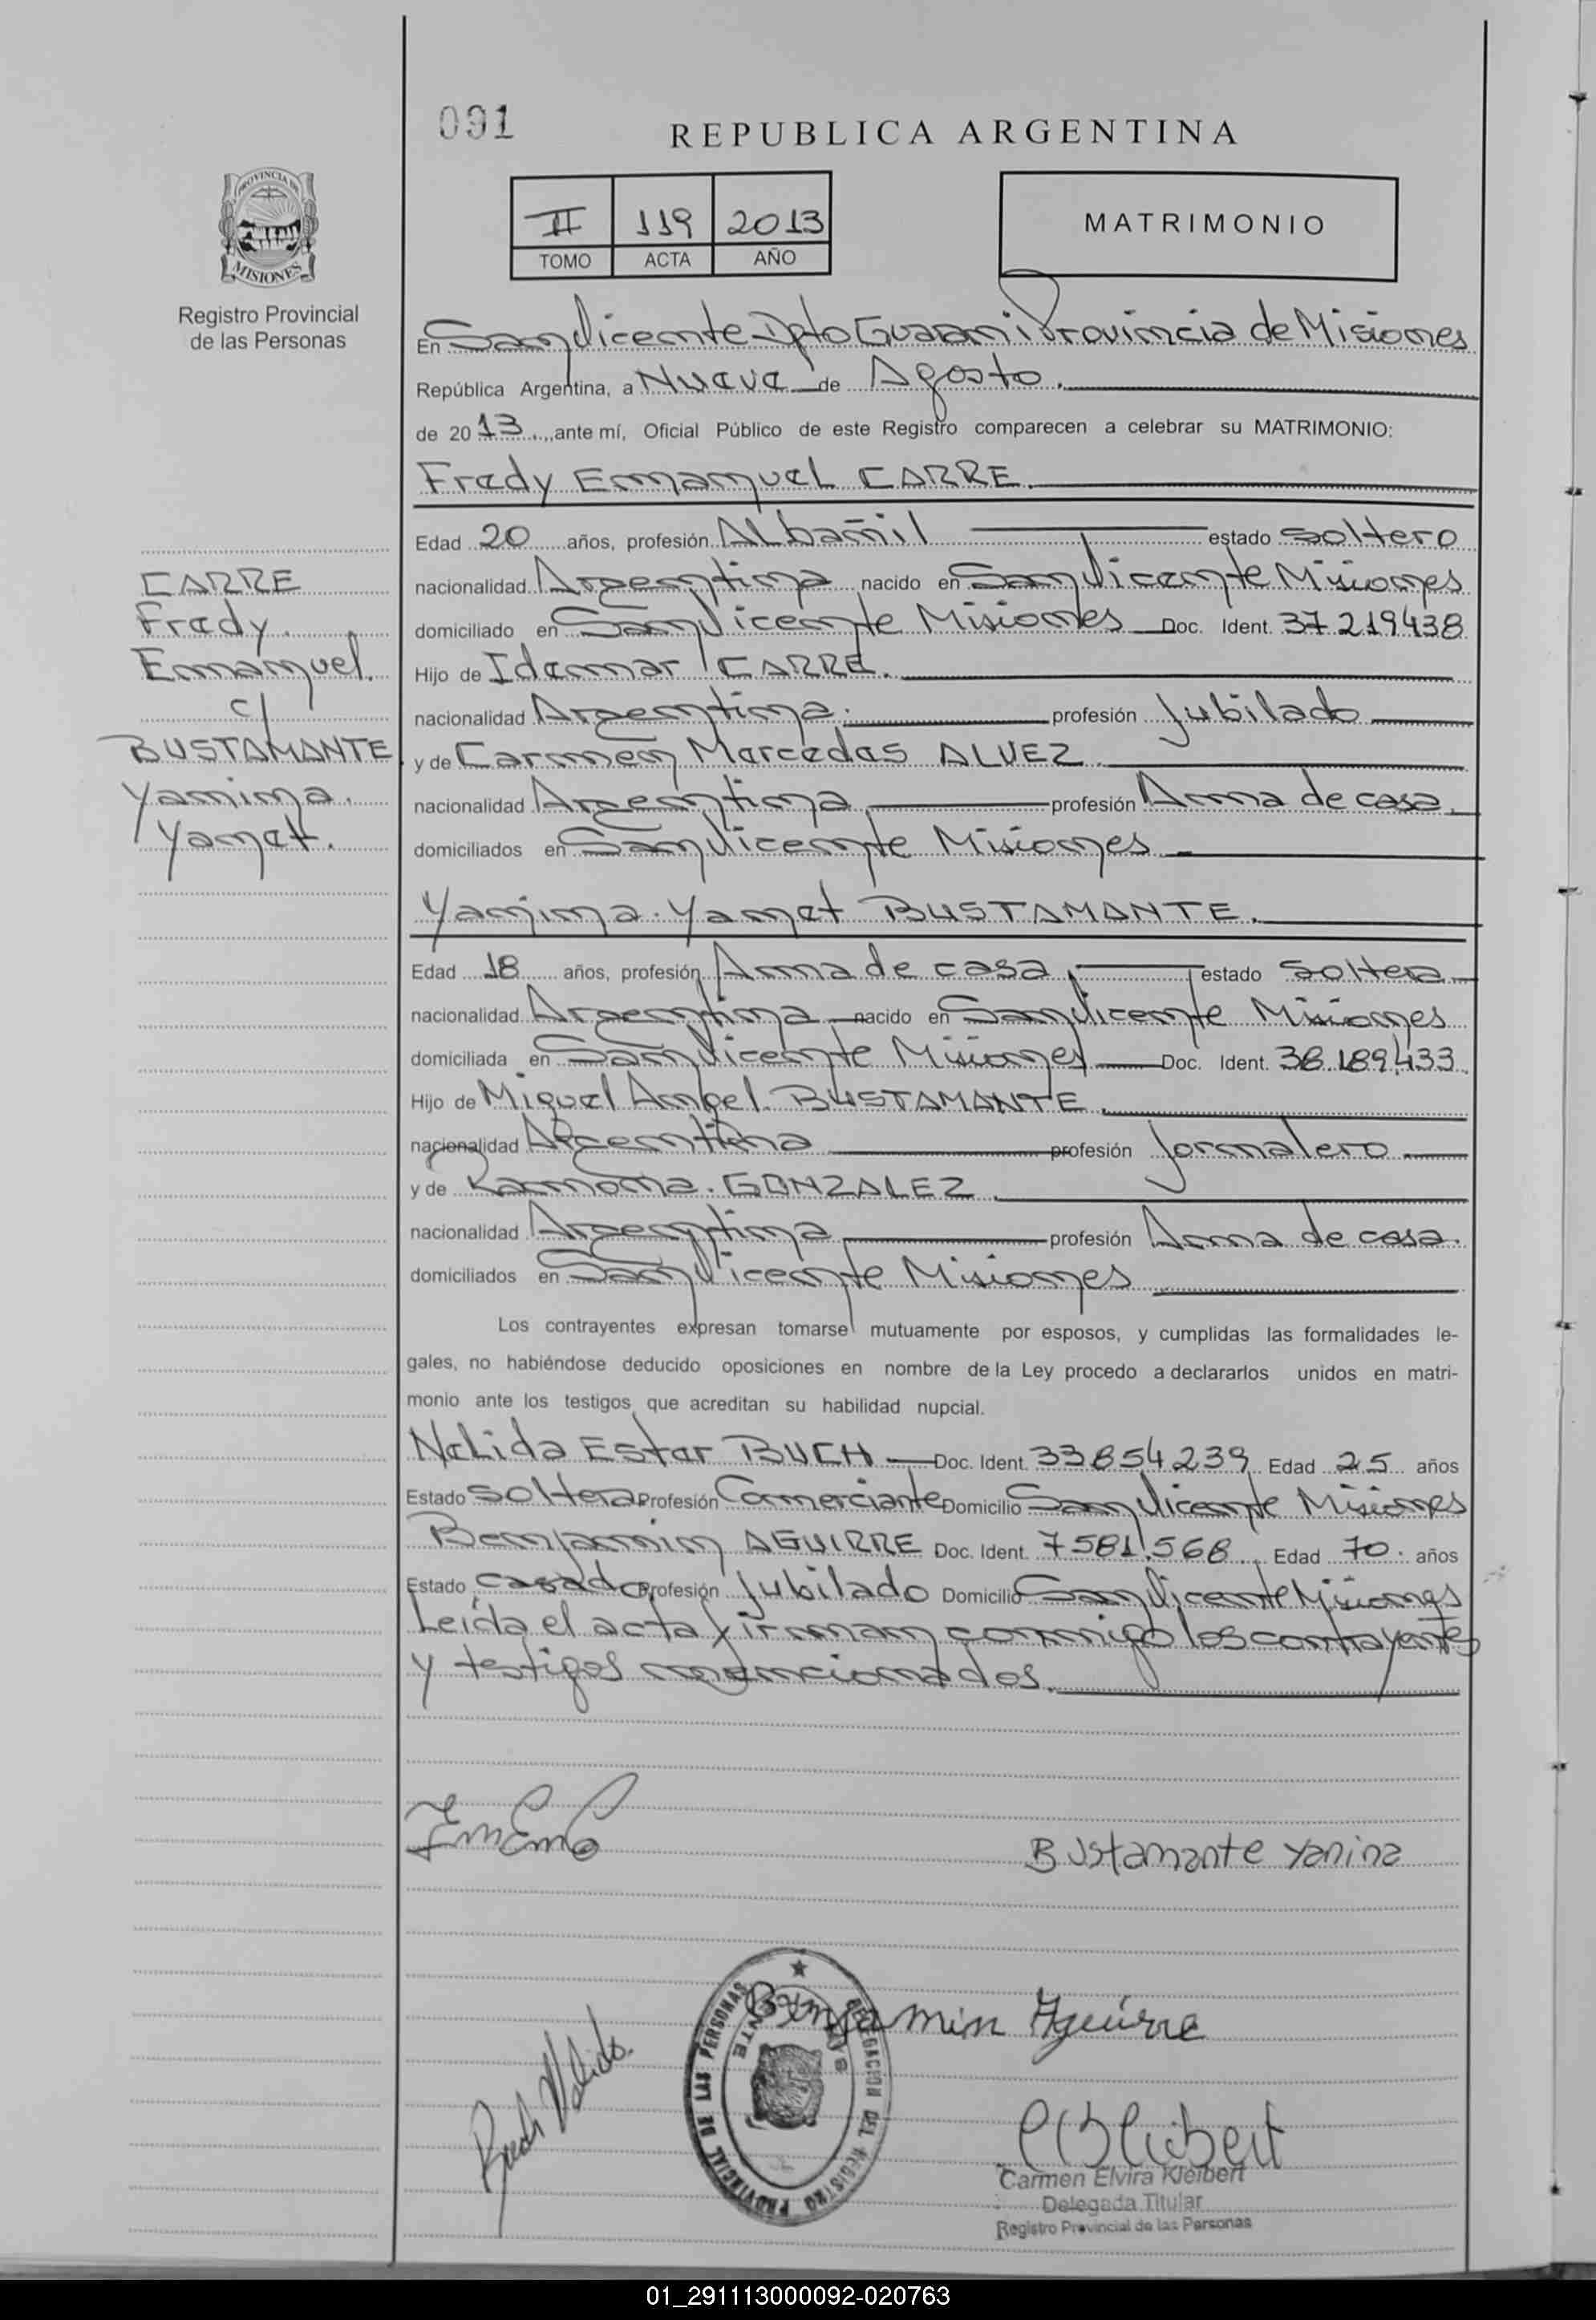 091
REPUBLICA ARGENTINA
PROVINCIA DE
MISIONES
Registro Provincial
de las Personas
II 119 2013
TOMO ACTA AÑO
MATRIMONIO
En San Vicente Dpto Guarani Provincia de Misiones
República Argentina, a Nueve de Agosto.
de 2013 ante mí, Oficial Público de este Registro comparecen a celebrar su MATRIMONIO:
Fredy Emmanuel CARRE
Edad 20 años, profesión Albañil estado soltero
nacionalidad Argentina nacido en San Vicente Misiones
domiciliado en San Vicente Misiones Doc. Ident. 37219438
Hijo de Idemar CARRE.
nacionalidad Argentina. profesión Jubilado
y de Carmen Mercedes ALVEZ
nacionalidad Argentina profesión Ama de casa
domiciliados en San Vicente Misiones
CARRE
Fredy
Emmanuel.
c/
BUSTAMANTE
Yanina.
Yanet.
Yanina Yanet BUSTAMANTE.
Edad 18 años, profesión Ama de casa estado Soltera
nacionalidad Argentina nacido en San Vicente Misiones
domiciliada en San Vicente Misiones Doc. Ident. 38.189.433
Hijo de Miguel Angel BUSTAMANTE
nacionalidad Argentina profesión Jornalero
y de Ramona GONZALEZ
nacionalidad Argentina profesión Ama de casa.
domiciliados en San Vicente Misiones
Los contrayentes expresan tomarse mutuamente por esposos, y cumplidas las formalidades le-
gales, no habiéndose deducido oposiciones en nombre de la Ley procedo a declararlos unidos en matri-
monio ante los testigos que acreditan su habilidad nupcial.
Nelida Ester BUCH Doc. Ident. 33854239 Edad 25 años
Estado soltera Profesión Comerciante Domicilio San Vicente Misiones
Benjamin AGUIRRE Doc. Ident. 7581.568 Edad 70 años
Estado casado Profesión Jubilado Domicilio San Vicente Misiones
Leida el acta firman conmigo los contrayentes
y testigos mencionados.
Bustamante Yanina
Benjamin Aguirre
Buch Nelida
DELEGACION DEL REGISTRO PROVINCIAL DE LAS PERSONAS
Carmen Elvira Kleibert
Delegada Titular
Registro Provincial de las Personas
01_291113000092-020763